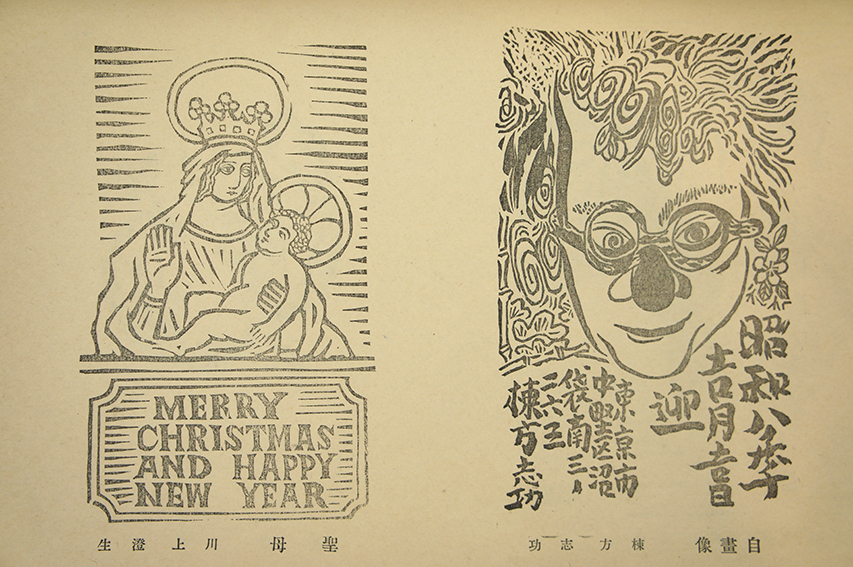 MERRY
CHRISTMAS
AND HAPPY
NEW YEAR
聖母 川上澄生
昭和八年
吉月吉日
迎
東京市
中野区沼
袋南三ノ
二六三
棟方志功
自畫像 棟方志功